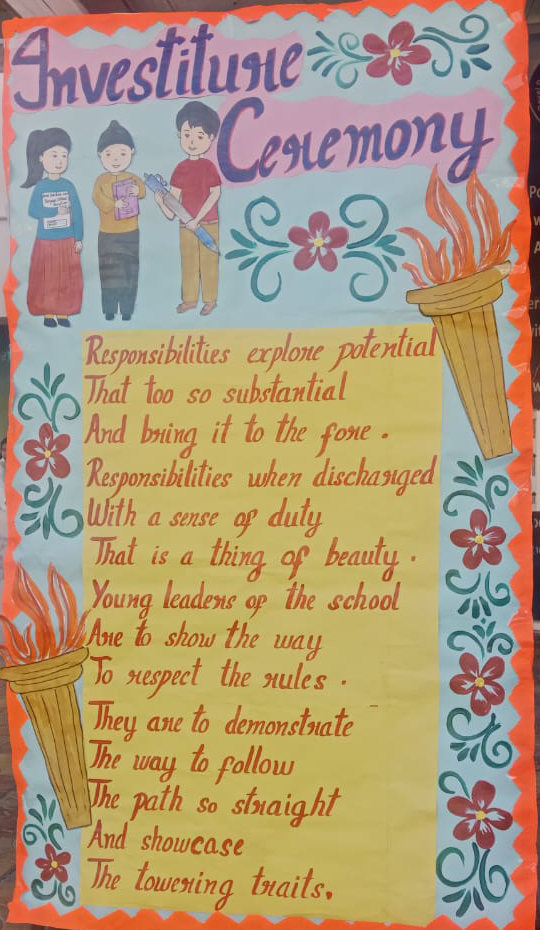 Investiture
Ceremony
Responsibilities explore potential
That too so substantial
And bring it to the fore.
Responsibilities when discharged
With a sense of duty
That is a thing of beauty.
Young leaders of the school
Are to show the way
To respect the rules.
They are to demonstrate
The way to follow
The path so straight
And showcase
The towering traits.